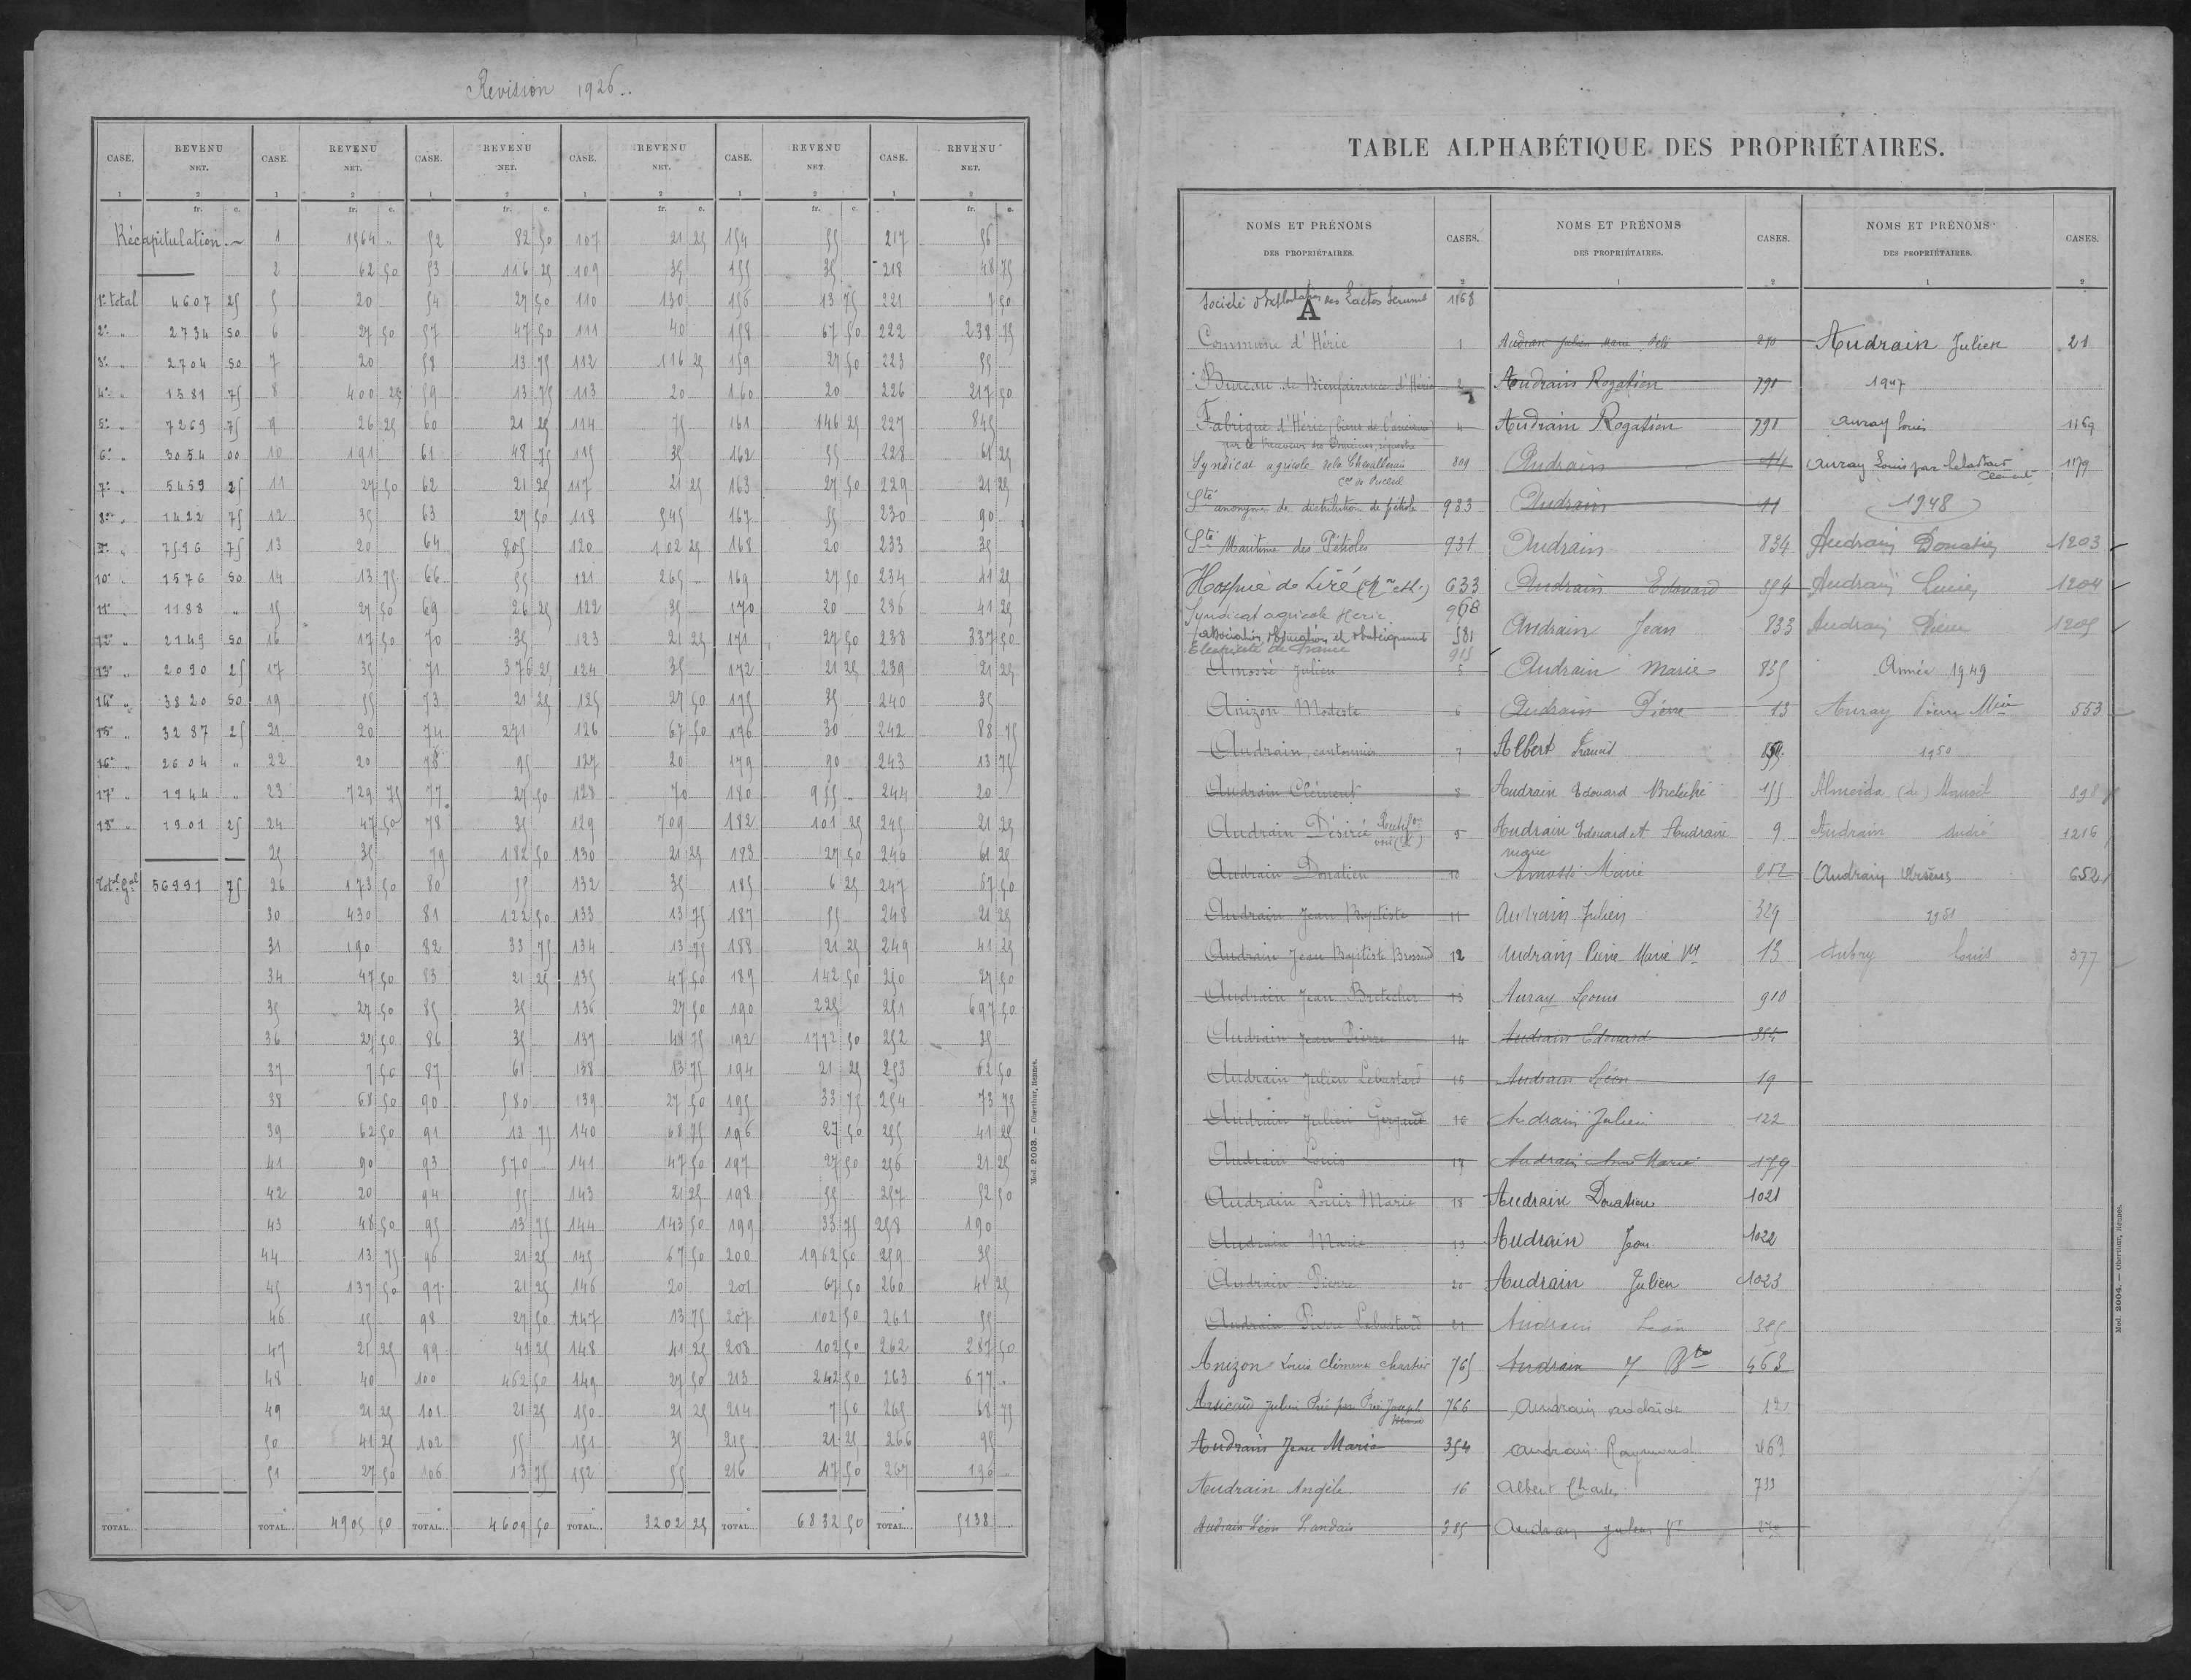 Revision 1926..
CASE. REVENU NET. CASE. REVENU NET. CASE. REVENU NET. CASE. REVENU NET. CASE. REVENU NET. CASE. REVENU NET.
1 2 1 2 1 2 1 2 1 2 1 2
fr. c. fr. c. fr. c. fr. c. fr. c. fr. c.
Récapitulation.~ 1 1964 " 52 82 50 107 21 25 154 55 217 56
2 62 50 53 116 25 109 35 155 35 218 48 75
1er total 4607 25 5 20 54 27 50 110 130 156 13 75 221 7 50
2e " 2734 50 6 27 50 57 47 50 111 40 158 67 50 222 238 75
3e " 2704 50 7 20 58 13 75 112 116 25 159 27 50 223 55
4e " 1581 75 8 400 25 59 13 75 113 20 160 20 226 217 50
5e " 7269 75 9 26 25 60 21 25 114 75 161 146 25 227 845
6e " 3054 00 10 191 61 48 75 115 35 162 55 228 61 25
7e " 5459 25 11 27 50 62 21 25 117 21 25 163 27 50 229 21 25
8e " 1422 75 12 35 63 27 50 118 545 167 55 230 90
9e " 7596 75 13 20 64 805 120 102 25 168 20 233 35
10e " 1576 50 14 13 75 66 55 121 265 169 27 50 234 41 25
11e " 1188 " 15 27 50 69 26 25 122 35 170 20 236 41 25
12e " 2149 50 16 17 50 70 35 123 21 25 171 27 50 238 337 50
13e " 2090 25 17 35 71 376 25 124 35 172 21 25 239 21 25
14e " 3820 50 19 55 73 21 25 125 27 50 175 35 240 35
15e " 3287 25 21 20 74 271 126 67 50 176 30 242 88 75
16e " 2604 " 22 20 75 95 127 20 179 90 243 13 75
17e " 1944 " 23 729 75 77 27 50 128 70 180 955 244 20
18e " 1901 25 24 47 50 78 35 129 709 182 101 25 245 21 25
25 35 79 182 50 130 21 25 183 27 50 246 61 25
Total Gal 56991 75 26 173 50 80 55 132 35 185 6 25 247 67 50
30 430 81 122 50 133 13 75 187 55 248 21 25
31 190 82 33 75 134 13 75 188 21 25 249 41 25
34 47 50 83 21 25 135 47 50 189 142 50 250 27 50
35 27 50 85 35 136 27 50 190 225 251 697 50
36 27 50 86 35 137 48 75 192 1772 50 252 35
37 7 50 87 61 138 13 75 194 21 25 253 62 50
38 68 50 90 580 139 27 50 195 33 75 254 73 75
39 62 50 91 13 75 140 68 75 196 27 50 255 41 25
41 90 93 570 141 47 50 197 27 50 256 21 25
42 20 94 55 143 21 25 198 55 257 52 50
43 48 50 95 13 75 144 143 50 199 33 75 258 190
44 13 75 96 21 25 145 67 50 200 1962 50 259 35
45 137 50 97 21 25 146 20 201 67 50 260 41 25
46 15 98 27 50 147 13 75 207 102 50 261 55
47 21 25 99 41 25 148 41 25 208 102 50 262 287 50
48 40 100 462 50 149 27 50 213 242 50 263 677
49 21 25 101 21 25 150 21 25 214 7 50 265 68 75
50 41 25 102 55 151 35 215 21 25 266 95
51 27 50 106 13 75 152 55 216 47 50 267 190
TOTAL... TOTAL... 4905 50 TOTAL... 4609 50 TOTAL... 3202 25 TOTAL... 6832 50 TOTAL... 5138
Mod. 2003. — Oberthur, Rennes.
TABLE ALPHABÉTIQUE DES PROPRIÉTAIRES.
NOMS ET PRÉNOMS DES PROPRIÉTAIRES. CASES. NOMS ET PRÉNOMS DES PROPRIÉTAIRES. CASES. NOMS ET PRÉNOMS DES PROPRIÉTAIRES. CASES.
1 2 1 2
Société d'Exploitation des Lactos Serums 1168
A
Commune d'Héric 1
Bureau de Bienfaisance d'Héric 2
Fabrique d'Héric 4
par le Receveur des Domaines, séquestre
Syndicat agricole de la Chevallerais 809
Sté anonyme de distribution de pétrole 983
Sté Maritime des Pétroles 931
Hospice de Liré 633
Syndicat agricole Heric 968
581
Electricité de France 915
Amossé Julien 5
Anizon Modeste 6
Audrain, cantonnier 7
Audrain Clément 8
Audrain Désirée 9
Audrain Donatien 10
Audrain Jean Baptiste 11
Audrain Jean Baptiste Brossaud 12
Audrain Jean Bretecher 13
Audrain Jean Pierre 14
Audrain Julien Lebastard 15
Audrain Julien Gergaud 16
Audrain Louis 17
Audrain Louis Marie 18
Audrain Marie 19
Audrain Pierre 20
Audrain Pierre Lebastard 21
Anizon Louis Clémence Chartier 765
766
Audrain Jean Marie 354
Audrain Angèle. 16
Audrain Léon Landais 385
Audrain Julien Marie 270
Audrain Rogatien 791
Audrain Rogatien 791
Audrain 14
Audrain 11
Audrain 834
Audrain Edouard 354
Audrain Jean 833
Audrain Marie 835
Audrain Pierre 13
Albert Francis
Audrain Edouard Bretéché 155
Audrain Edouard et Audrain 9
Amossé Marie 252
Audrain Julien 329
Audrain Pierre Marie 13
Auray Louis 910
Audrain Edouard 354
Audrain Léon 19
Audrain Julien 122
Audrain Marie 179
Audrain Donatien 1021
Audrain Jean 1022
Audrain Julien 1023
Audrain Léon 385
Audrain J Bte 463
Audrain 12
Audrain Raymond 463
Albert Charles 733
Audrain Julien
Audrain Julien 21
1947
Auray Louis 1169
Auray Louis par Lebastard Clément 1179
1948
Audrain Donatien 1203
Audrain Lucien 1204
Audrain Pierre 1205
Année 1949
Auray Pierre 553
1950
Almeida (de) Manoel 898
Audrain André 1216
Audrain Arsène 652
1951
Aubry Louis 377
Mod. 2004. — Oberthur, Rennes.